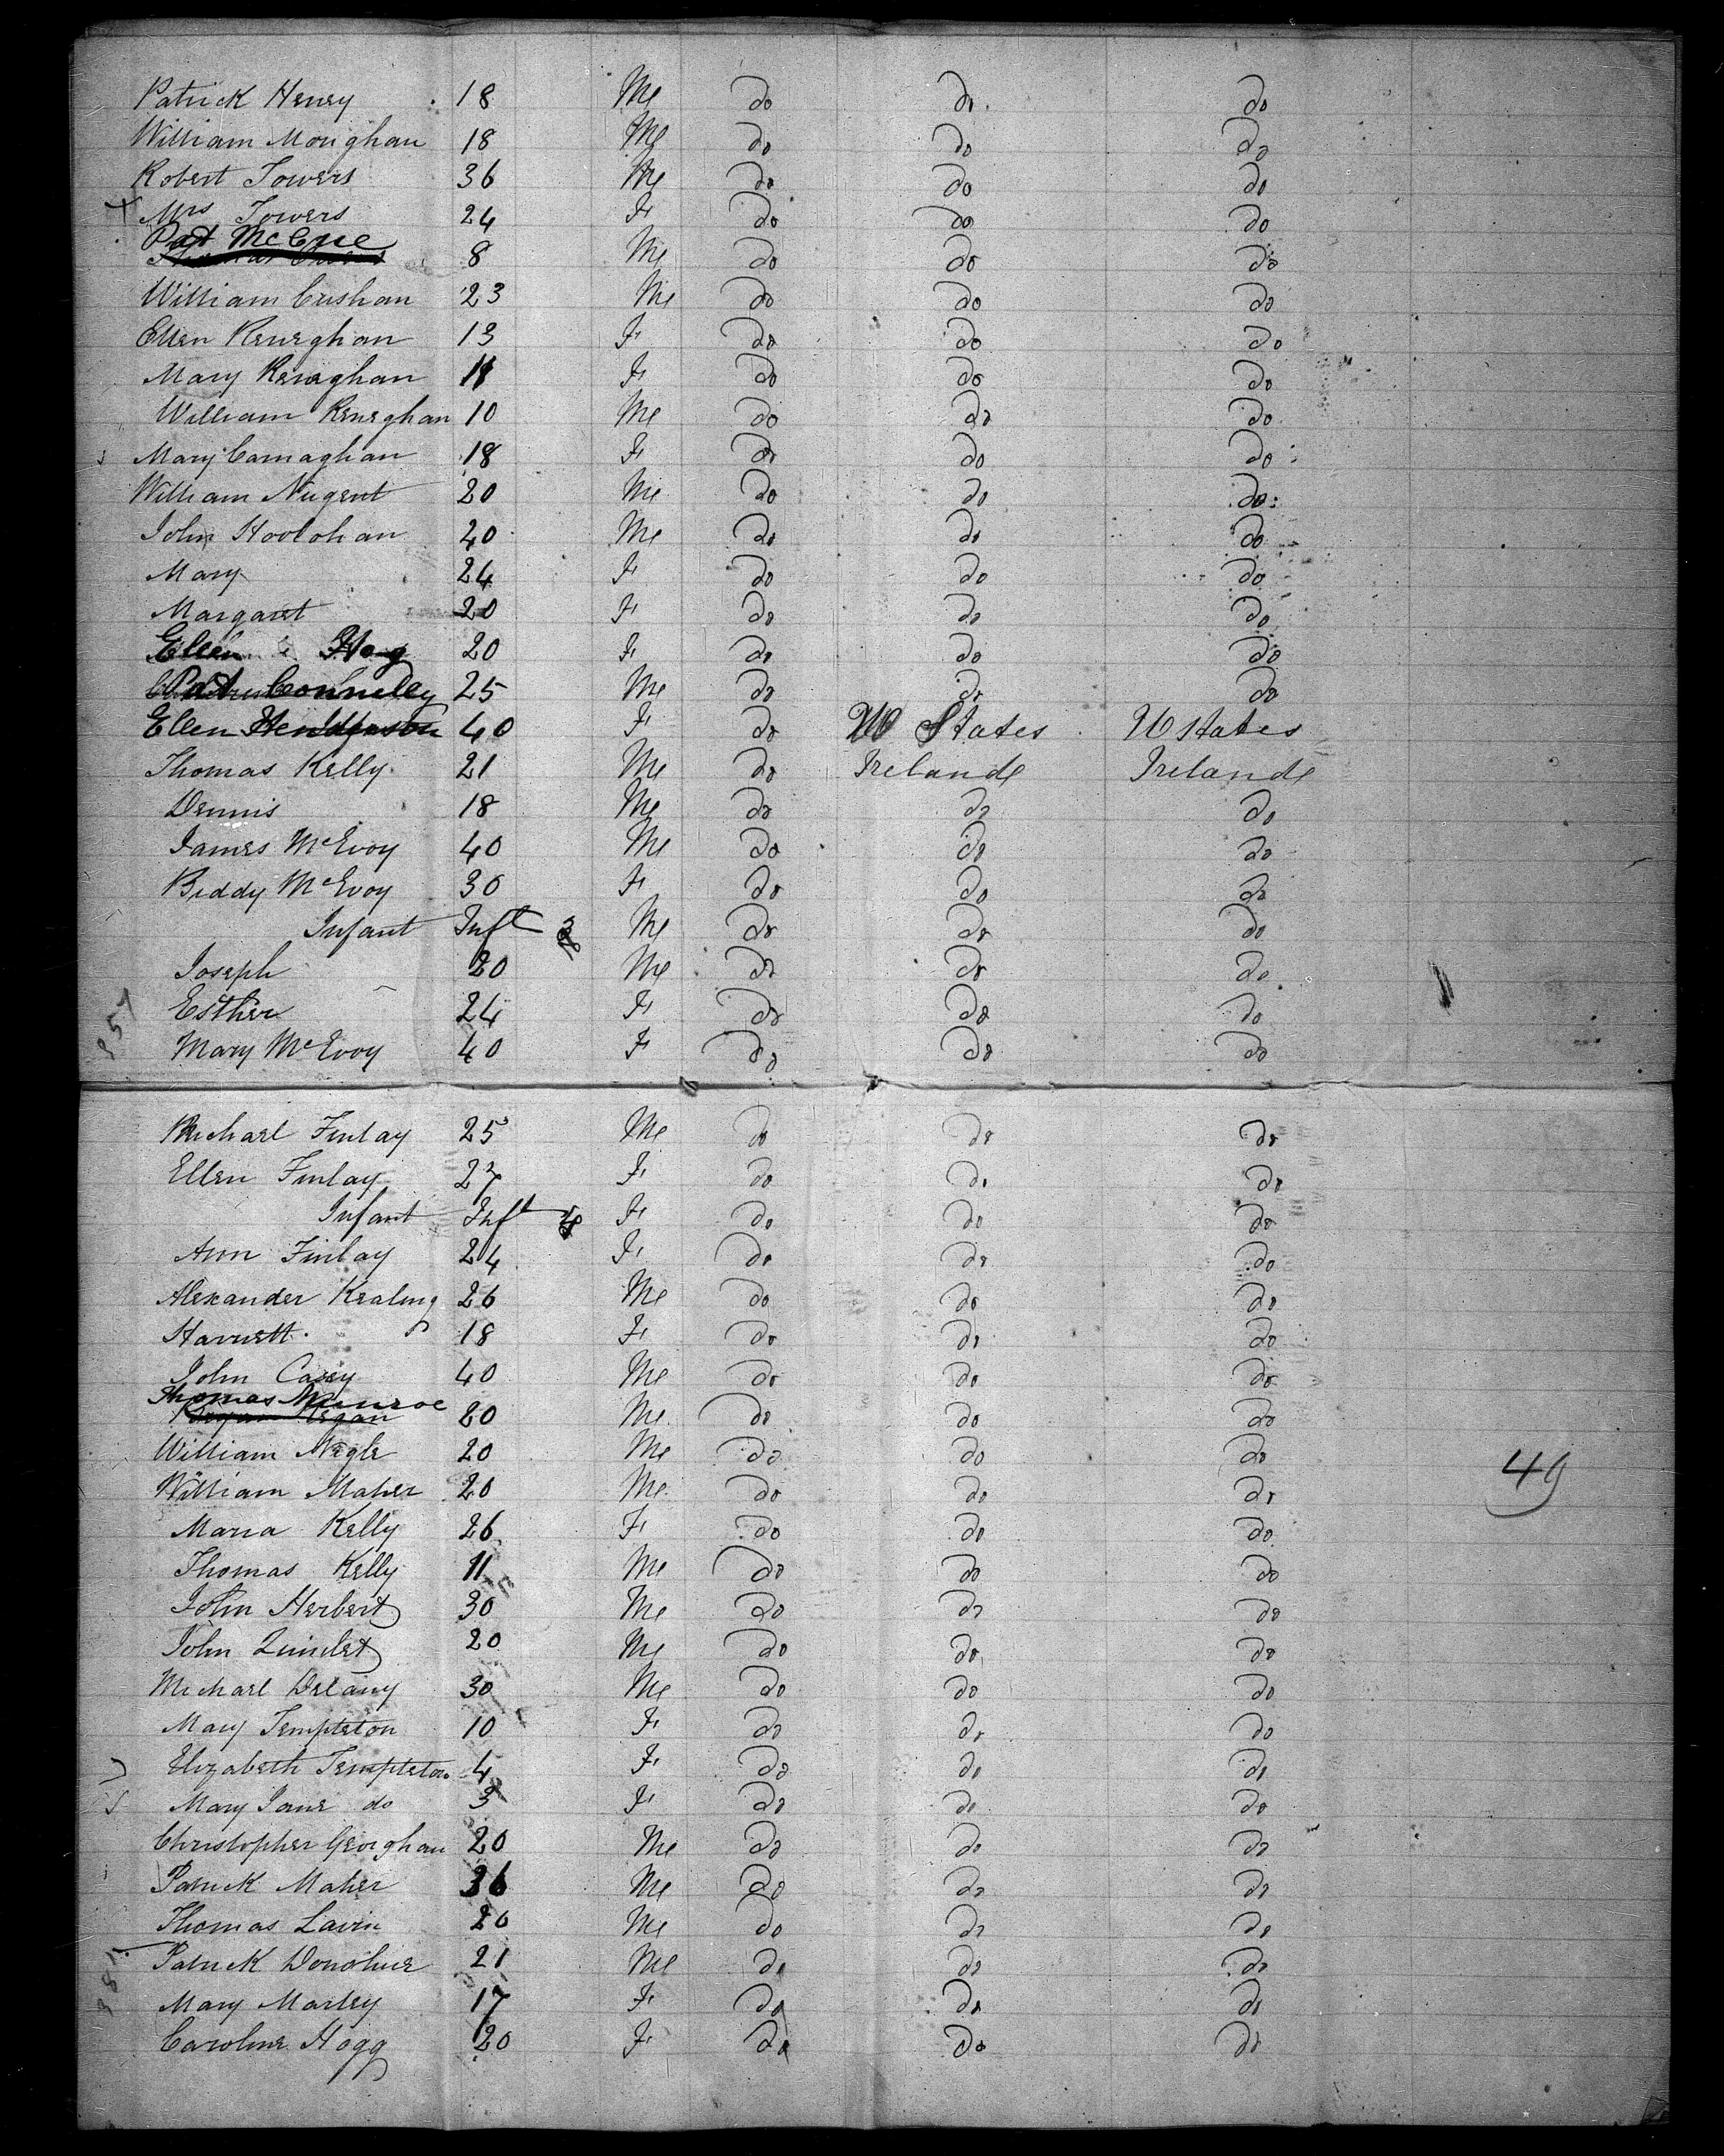 Patrick Henry 18 Me do do do
William Monighan 18 Me do do do
Robert Towers 36 Me do do do
Mrs Towers 24 F do do do
Pat McCue
8 Me do do do
William Cushan 23 Me do do do
Ellen Keneghan 13 F do do do
Mary Keneghan 11 F do do do
William Keneghan 10 Me do do do
Mary Carnaghan 18 F do do do
William Nugent 20 Me do do do
John Hoolohan 40 Me do do do
Mary 24 F do do do
Margaret 20 F do do do
Ellen Hog 20 F do do do
Pat Connelley 25 Me do do do
Ellen Henderson 40 F do U States U States
Thomas Kelly 21 Me do Irelande Irelande
Dennis 18 Me do do do
James McEvoy 40 Me do do do
Biddy McEvoy 30 F do do do
Infant Inft Me do do do
Joseph 20 Me do do do
Esther 24 F do do do
857
Mary McEvoy 40 F do do do
Michael Finlay 25 Me do do do
Ellen Finlay 27 F do do do
Infant Inft F do do do
Ann Finlay 24 F do do do
Alexander Kealing 26 Me do do do
Harnett 18 F do do do
John Casey 40 Me do do do
Thomas Munroe
Regan 20 Me do do do
William Nagle 20 Me do do do
49
William Maher 20 Me do do do
Maria Kelly 26 F do do do
Thomas Kelly 11 Me do do do
John Herbert 30 Me do do do
John Quinlet 20 Me do do do
Michael Delany 30 Me do do do
Mary Templeton 10 F do do do
Elizabeth Templeton 4 F do do do
Mary Jane do 3 F do do do
Christopher Geoghan 20 Me do do do
Patrick Maher 36 Me do do do
Thomas Lavin 20 Me do do do
Patrick Donohue 21 Me do do do
Mary Marley 17 F do do do
Caroline Hogg 20 F do do do